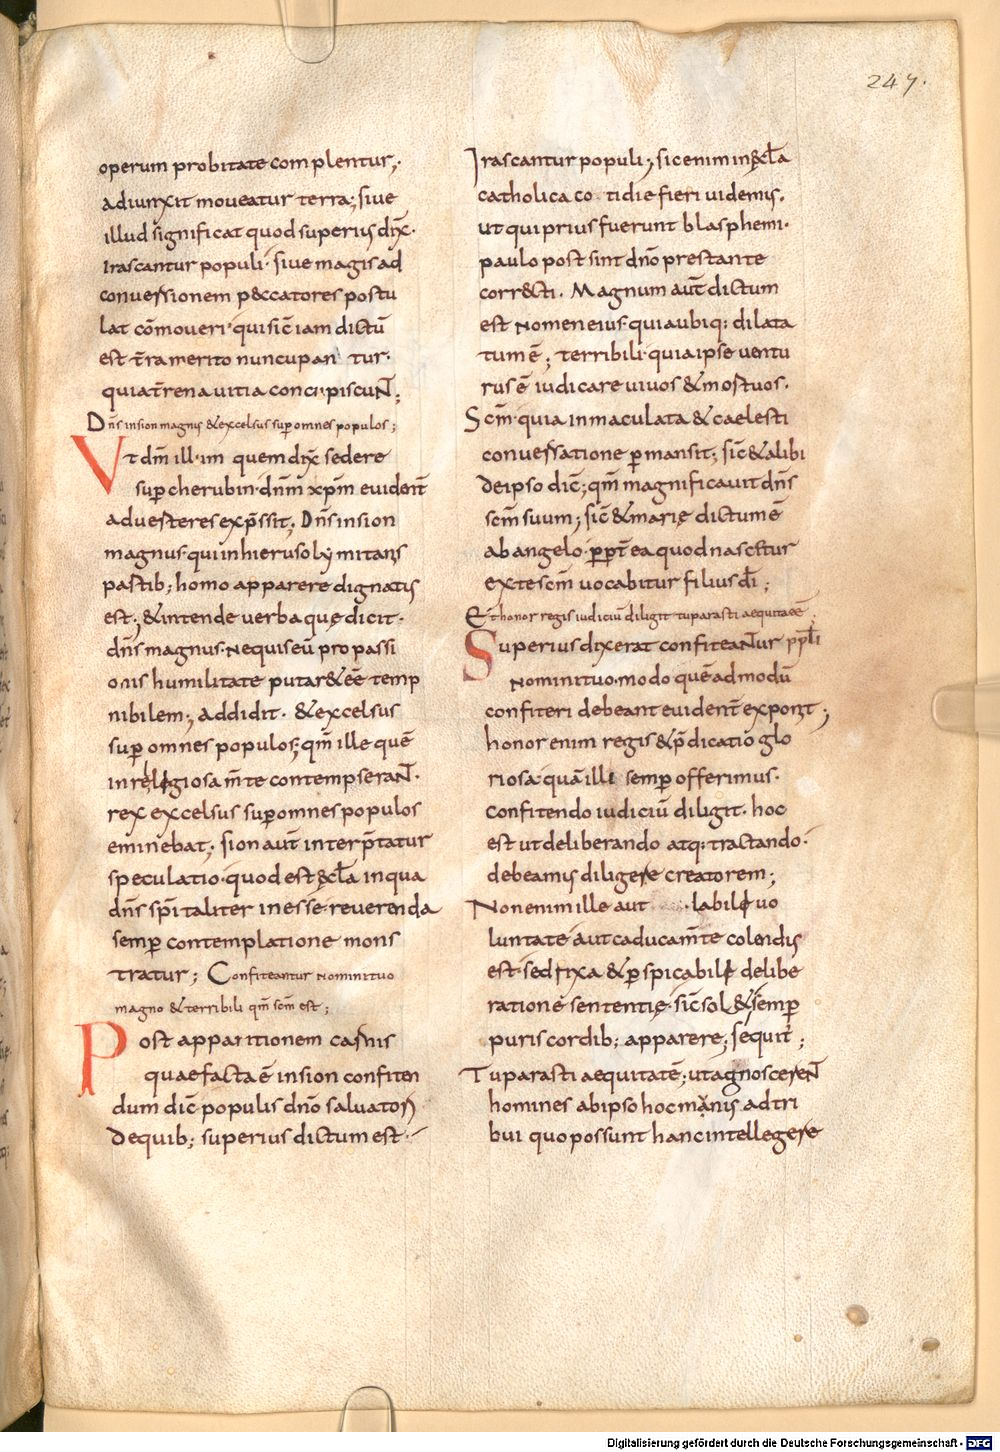 247.
operum probitate complentur;
adiunxit moueatur terra; siue
illud significat quod superius dix̄·
Irascantur populi· siue magis ad
conuersionem peccatores postu
lat cōmoueri· qui sic̄ iam dictū
est t̄ra merito nuncupan tur·
quia t̄rena uitia concupiscunt;
Dn̄s in sion magnus & excelsus sup̄ omnes populos;
Vt dm̄ illum quem dix̄ sedere
sup̄ cherubin· dn̄m xp̄m euident̄
aduerteres exp̄ssit; Dn̄s in sion
magnus· qui in hierusolymitanis
partib; homo apparere dignatus
est; & intende uerba quę dicit·
dn̄s magnus· Ne quis eū pro passi
onis humilitate putar& eē temp
nibilem; addidit· & excelsus
sup̄ omnes populos; qm̄ ille quē
inreligiosa m̄te contempserant·
rex excelsus sup̄ omnes populos
eminebat; sion aut̄ interp̄tatur
speculatio· quod est ęcl̄a in qua
dn̄s sp̄italiter inesse reuerenda
semp̄ contemplatione mons
tratur; Confiteantur nomini tuo
magno & terribili qm̄ scm̄ est;
Post apparitionem carnis
quae facta ē in sion confiten
dum dic̄ populis dn̄o saluatori
De quib; superius dictum est·
Irascantur populi; sic enim in ęcl̄a
catholica co tidie fieri uidemus·
ut qui prius fuerunt blasphemi·
paulo post sint dn̄o prestante
correcti. Magnum aut̄ dictum
est nomen eius· quia ubiq: dilata
tum ē; terribili· quia ipse uentu
rus ē iudicare uiuos & mortuos·
Scm̄· quia inmaculata & caelesti
conuersatione p̄mansit; sic̄ & alibi
de ipso dic̄; qm̄ magnificauit dn̄s
scm̄ suum; sic̄ & marię dictum ē
ab angelo· p̄pt̄ ea quod nascetur
ex te scm̄ uocabitur filius dī;
Et honor regis iudiciū diligit tu parasti aequitatē;
Superius dixerat confiteantur pp̄li
nomini tuo· modo quē ad modū
confiteri debeant euident̄ exponit;
honor enim regis & p̄dicatio glo
riosa· quā illi semp̄ offerimus·
confitendo iudiciū diligit· hoc
est ut deliberando atq: tractando·
debeamus diligere creatorem;
Non enim ille aut labile uo
luntate aut caduca m̄te colendus
est· sed fixa & p̄spicabili delibe
ratione sententię· sic̄ sol & semp̄
puris cordib; apparere; sequit̄;
Tu parasti aequitatē; ut agnoscerent
homines ab ipso hoc munus adtri
bui quo possunt hanc intellegere
Digitalisierung gefördert durch die Deutsche Forschungsgemeinschaft - DFG